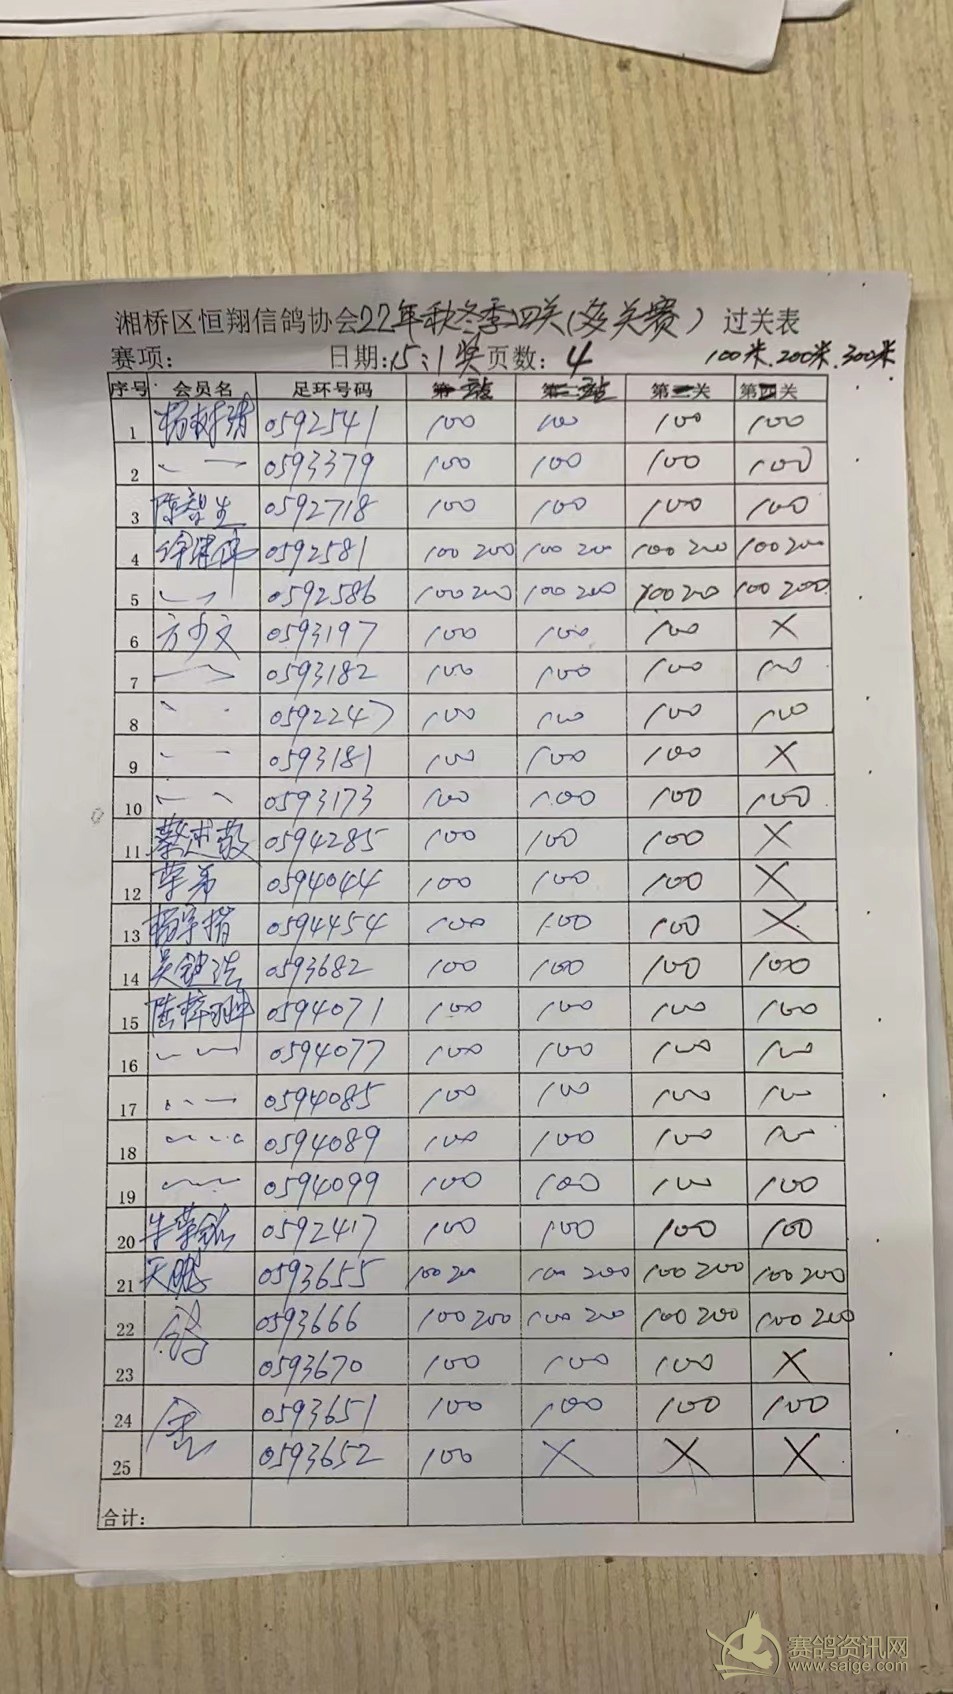 湘桥区恒翔信鸽协会22年秋冬季四关(多关赛) 过关表
赛项: 日期:15:1奖页数: 4 100米.200米.300米
序号 会员名 足环号码 第一站 第二站 第三关 第四关
1 杨树 0592541 100 100 100 100
2 0593379 100 100 100 100
3 陈智生 0592718 100 100 100 100
4 0592581 100 200 100 200 100 200 100 200
5 0592586 100 200 100 200 100 200 100 200
6 方少文 0593197 100 100 100 ×
7 0593182 100 100 100 100
8 0592247 100 100 100 100
9 0593181 100 100 100 ×
10 0593173 100 100 100 100
11 0594285 100 100 100 ×
12 0594044 100 100 100 ×
13 0594454 100 100 100 ×
14 0593682 100 100 100 100
15 0594071 100 100 100 100
16 0594077 100 100 100 100
17 0594085 100 100 100 100
18 0594089 100 100 100 100
19 0594099 100 100 100 100
20 0592417 100 100 100 100
21 天鹏 0593655 100 200 100 200 100 200 100 200
22 鸽 0593666 100 200 100 200 100 200 100 200
23 0593670 100 100 100 ×
24 舍 0593651 100 100 100 100
25 0593652 100 × × ×
合计:
赛鸽资讯网
www.saige.com